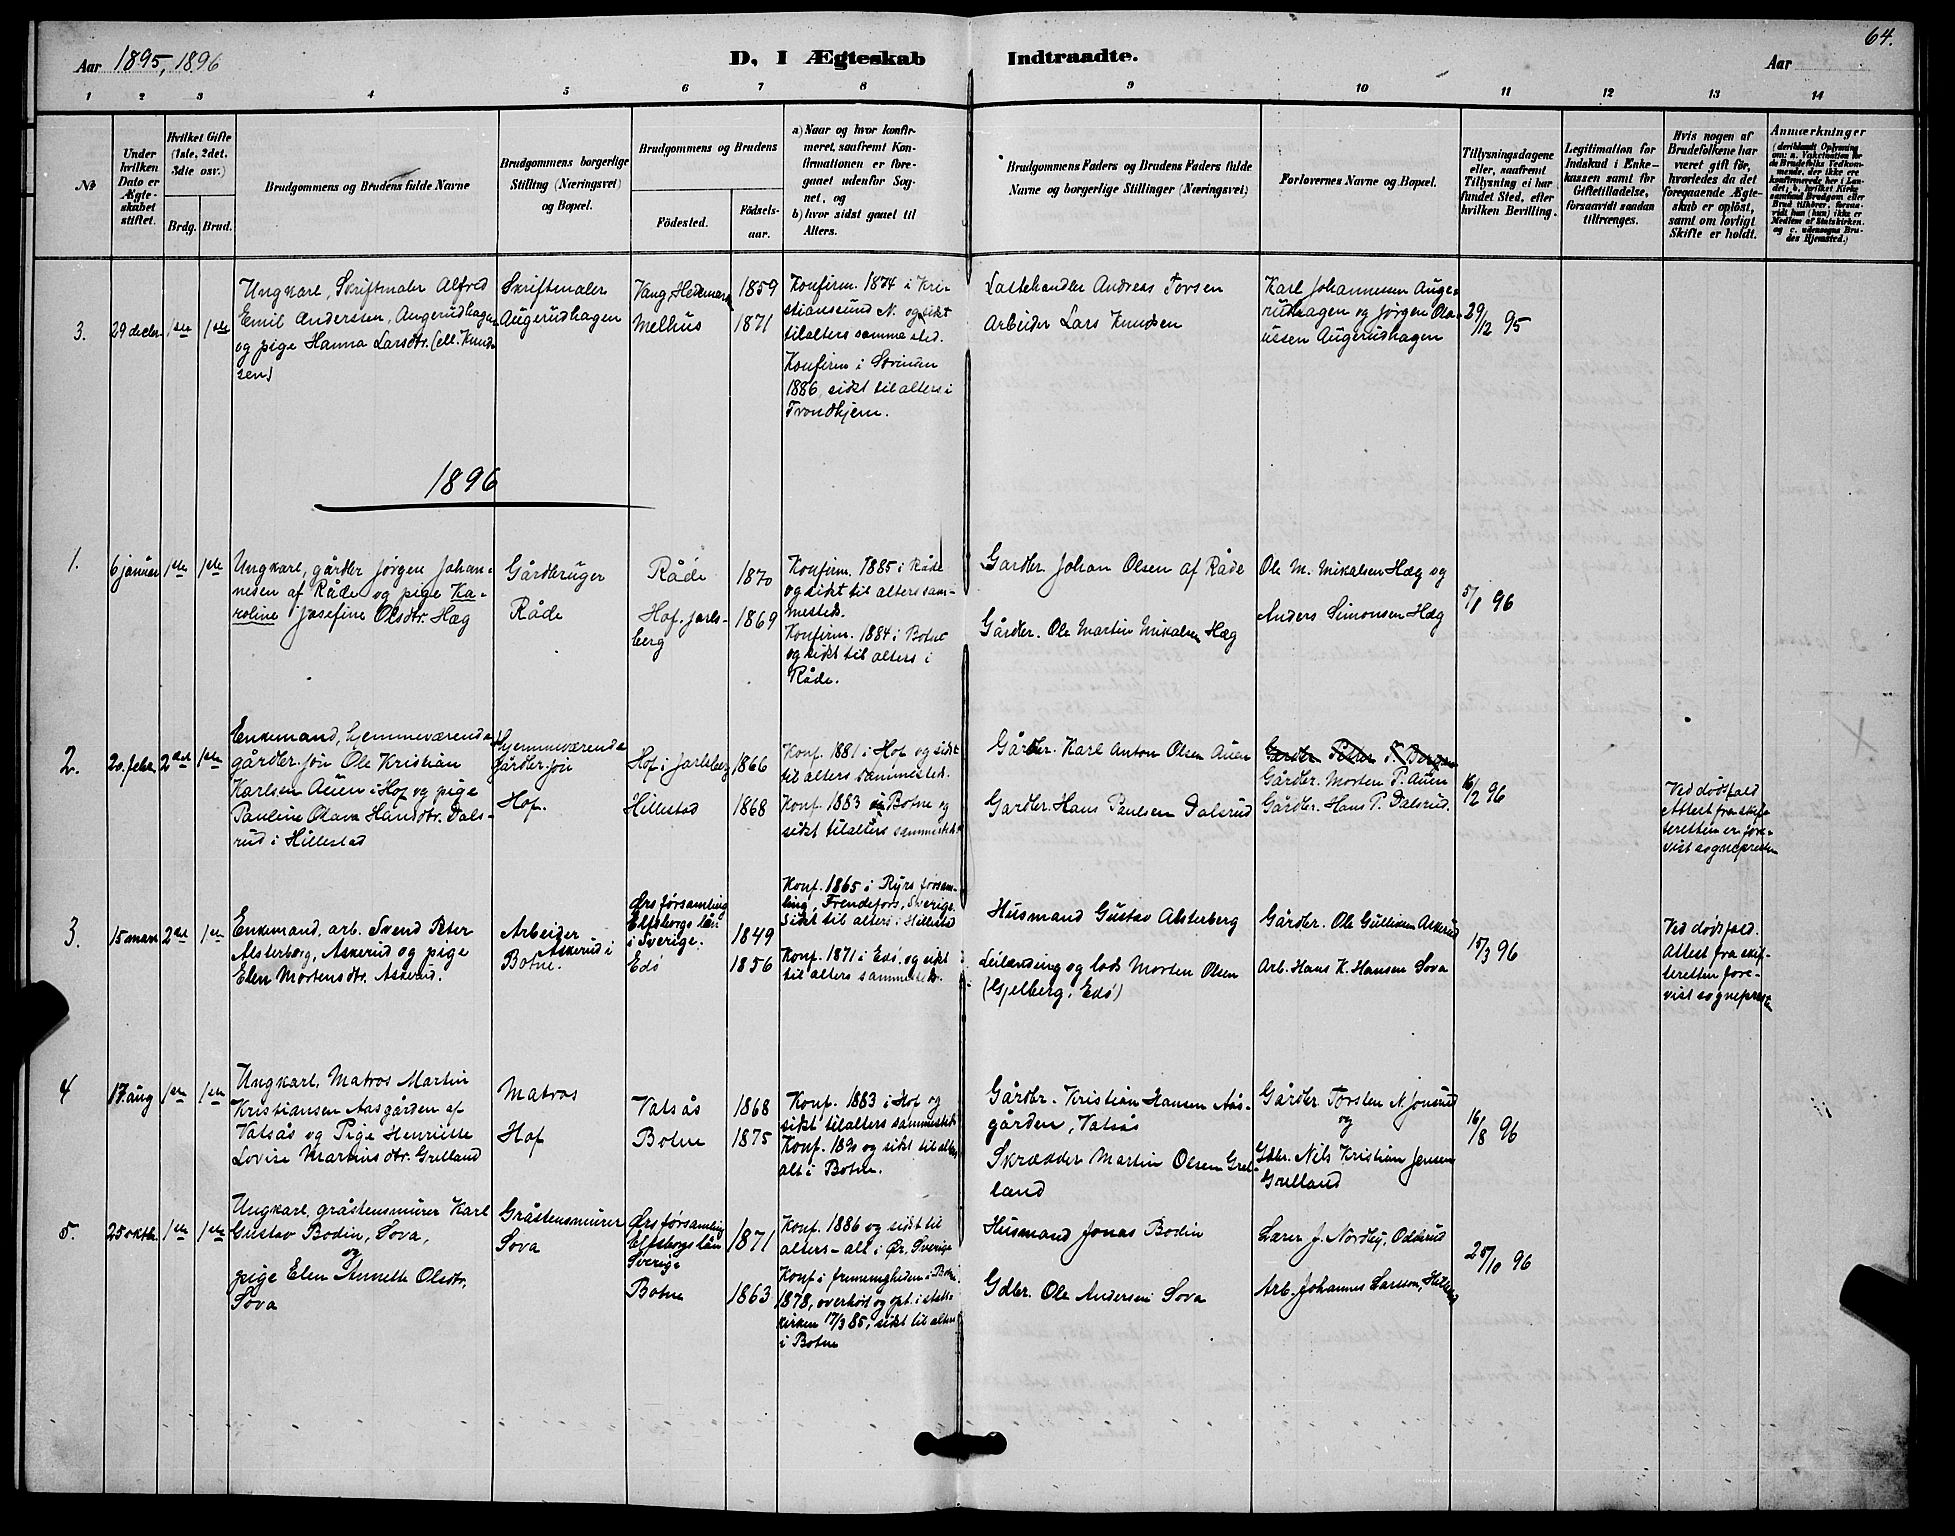 64.
Aar 1895, 1896
D, I Ægteskab Indtraadte.
Aar
1 2 3 4 5 6 7 8 9 10 11 12 13 14
No
Under hvilken Dato er Ægteskabet stiftet.
Hvilket Gifte (1ste, 2det, 3die osv.)
Brdg. Brud.
Brudgommens og Brudens fulde Navne
Brudgommens borgerlige Stilling (Næringsvei) og Bopæl.
Brudgommens og Brudens
Fødested.
Fødselsaar.
a) Naar og hvor konfirmeret, saafremt Konfirmationen er foregaaet udenfor Sognet, og
b) hvor sidst gaaet til Alters.
Brudgommens Faders og Brudens Faders fulde Navne og borgerlige Stillinger (Næringsvei)
Forlovernes Navne og Bopæl.
Tillysningsdagene eller, saafremt Tillysning ei har fundet Sted, efter hvilken Bevilling.
Legitimation for Indskud i Enkekassen samt for Giftetilladelse, forsaavidt saadan tiltrænges.
Hvis nogen af Brudefolkene har været gift før, hvorledes da det foregaaende Ægteskab er opløst, samt om lovligt Skifte er holdt.
Anmærkninger
(deriblandt Oplysning om: a. Vakcination for de Brudefolks Vedkommende, der ikke ere konfirmerede her i Landet; b. hvilket Kirkesamfund Brudgom eller Brud tilhører, forsaavidt han (hun) ikke er Medlem af Statskirken, og c. udensogns Brudes Hjemsted.)
3. 29 decbr 1ste 1ste
Ungkarl, Skriftmaler Alfred
Emil Andersen, Augerudhagen
og pige Hanna Larsdtr. (ell. Knud-
sen)
Skriftmaler
Augerudhagen
Vang, Hedemark 1859
Melhus 1871
Konfirm. 1874 i Kri-
stiansund N. og sidst
tilalters sammested.
Konfirm i
1886, sidst til alters i
Trondhjem.
Lastehandler Andreas Torsen
Arbeider Lars Knudsen
Karl Johannesen Auge-
rudhagen og Jørgen Ola-
ussen Augerudhagen
29/12 95
1896
1. 6 januar 1ste 1ste
Ungkarl, gårdbr Jørgen Johan-
nesen af Råde og pige Ka-
roline Josefine Olsdtr. Hæg
Gårdbruger
Råde
Råde 1870
Hof. Jarls-
berg 1869
Konfirm. 1885 i Råde
og sidst til alters sam-
mested.
Konfirm. 1884 i Botne
og sidst til alters i
Råde.
Gardbr Johan Olsen af Råde
Gårdbr. Ole Martin Mikalsen Hæg
Ole M. Mikalsen Hæg og
Anders Simonsen Hæg
5/1 96
2. 20. febr. 2det 1ste
Enkemand, hjemmeværende
gårdbr. søn Ole Kristian
Karlsen Auen i Hof og pige
Pauline Olava Hansdtr. Dals-
rud i Hillestad
Hjemmeværende
gårdbr. søn
Hof.
Hof i Jarlsberg 1866
Hillestad 1868
Konf. 1881 i Hof og sidst
til alters sammested.
Konf. 1883 i Botne og
sidst tilalters sammested
Gårdbr. Karl Anton Olsen Auen
Gardbr. Hans Paulsen Dalsrud
Gårdbr. Morten P. Auen
Gårdbr. Hans P. Dalsrud.
16/2 96
Ved dødsfald
Attest fra skif-
teretten er fore-
vist sognepresten
3. 15 mars 2det 1ste
Enkemand, arb. Svend Peter
Alsterberg, Askerud og pige
Elen Mortensdtr. Askerud.
Arbeider
Askerud i
Botne.
Ørs forsamling
Elfsborgs län
i Sverige. 1849
Edø 1856
Konf. 1865 i Ryrs forsam-
ling, Frendefors, Sverige.
Sidst til alters i Hillestad
Konf. 1871 i Edø, og sidst
til alters sammested.
Husmand Gustav Alsterberg
Leilænding og lods Morten Olsen
(Gjelberg, Edø)
Gårdbr. Ole Gulliksen Askerud
Arb. Hans K. Hansen Sova
15/3 96
Ved dødsfald.
Attest fra skif-
teretten fore-
vist sognepresten
4 17. aug 1ste 1ste
Ungkarl, Matros Martin
Kristiansen Aasgården af
Valsås og Pige Henriette
Lovise Martinsdtr. Grelland
Matros
Hof
Valsås 1868
Botne 1875
Konf. 1883 i Hof og
sidst tilalters sammested
Konf. 1890 og sidst til alters
alt i Botne.
Gårdbr. Kristian Hansen Aas-
gården, Valsås
Skrædder Martin Olsen Grel-
land
Gårdbr Torsten N. Jonsrud
og
Gdbr. Nils Kristian Jensen
Grelland
16/8 96
5. 25 oktbr. 1ste 1ste
Ungkarl, gråstensmurer Karl
Gustav Bodin, Sova,
og
pige Elen Annette Olsdtr,
Sova
Gråstensmurer
Sova
Ørs forsamling
Elfsborgs län
Sverige 1871
Botne 1863
Konf. 1886 og sidst til
alters - alt i Ør, Sverige
Konf i frimenigheden i Botne
1878, overhørt og opt. i stats-
kirken 17/3 85, sidst til alters
i Botne
Husmand Jonas Bodin
Gdbr. Ole Andersen Sova
Lærer J. Nordby, Odderud
Arb. Johannes Larsson, Hillestad
25/10 96